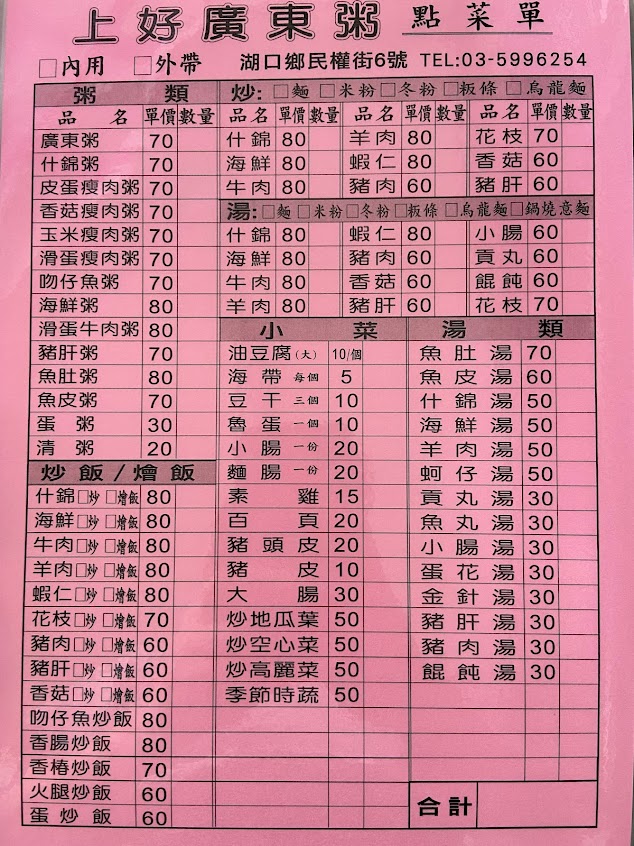 上好廣東粥 點菜單
□內用 □外帶 湖口鄉民權街6號 TEL:03-5996254
粥類
品名 單價 數量
廣東粥 70
什錦粥 70
皮蛋瘦肉粥 70
香菇瘦肉粥 70
玉米瘦肉粥 70
滑蛋瘦肉粥 70
吻仔魚粥 70
海鮮粥 80
滑蛋牛肉粥 80
豬肝粥 70
魚肚粥 80
魚皮粥 70
蛋粥 30
清粥 20
炒飯/燴飯
什錦□炒 □燴飯 80
海鮮□炒 □燴飯 80
牛肉□炒 □燴飯 80
羊肉□炒 □燴飯 80
蝦仁□炒 □燴飯 80
花枝□炒 □燴飯 70
豬肉□炒 □燴飯 60
豬肝□炒 □燴飯 60
香菇□炒 □燴飯 60
吻仔魚炒飯 80
香腸炒飯 80
香椿炒飯 70
火腿炒飯 60
蛋炒飯 60
炒: □麵 □米粉 □冬粉 □板條 □烏龍麵
品名 單價 數量 品名 單價 數量 品名 單價 數量
什錦 80 羊肉 80 花枝 70
海鮮 80 蝦仁 80 香菇 60
牛肉 80 豬肉 60 豬肝 60
湯: □麵 □米粉 □冬粉 □板條 □烏龍麵 □鍋燒意麵
什錦 80 蝦仁 80 小腸 60
海鮮 80 豬肉 60 貢丸 60
牛肉 80 香菇 60 餛飩 60
羊肉 80 豬肝 60 花枝 70
小菜
油豆腐(大) 10/個
海帶 每個 5
豆干 三個 10
魯蛋 一個 10
小腸 一份 20
麵腸 一份 20
素雞 15
百頁 20
豬頭皮 20
豬皮 10
大腸 30
炒地瓜葉 50
炒空心菜 50
炒高麗菜 50
季節時蔬 50
湯類
魚肚湯 70
魚皮湯 60
什錦湯 50
海鮮湯 50
羊肉湯 50
蚵仔湯 50
貢丸湯 30
魚丸湯 30
小腸湯 30
蛋花湯 30
金針湯 30
豬肝湯 30
豬肉湯 30
餛飩湯 30
合計